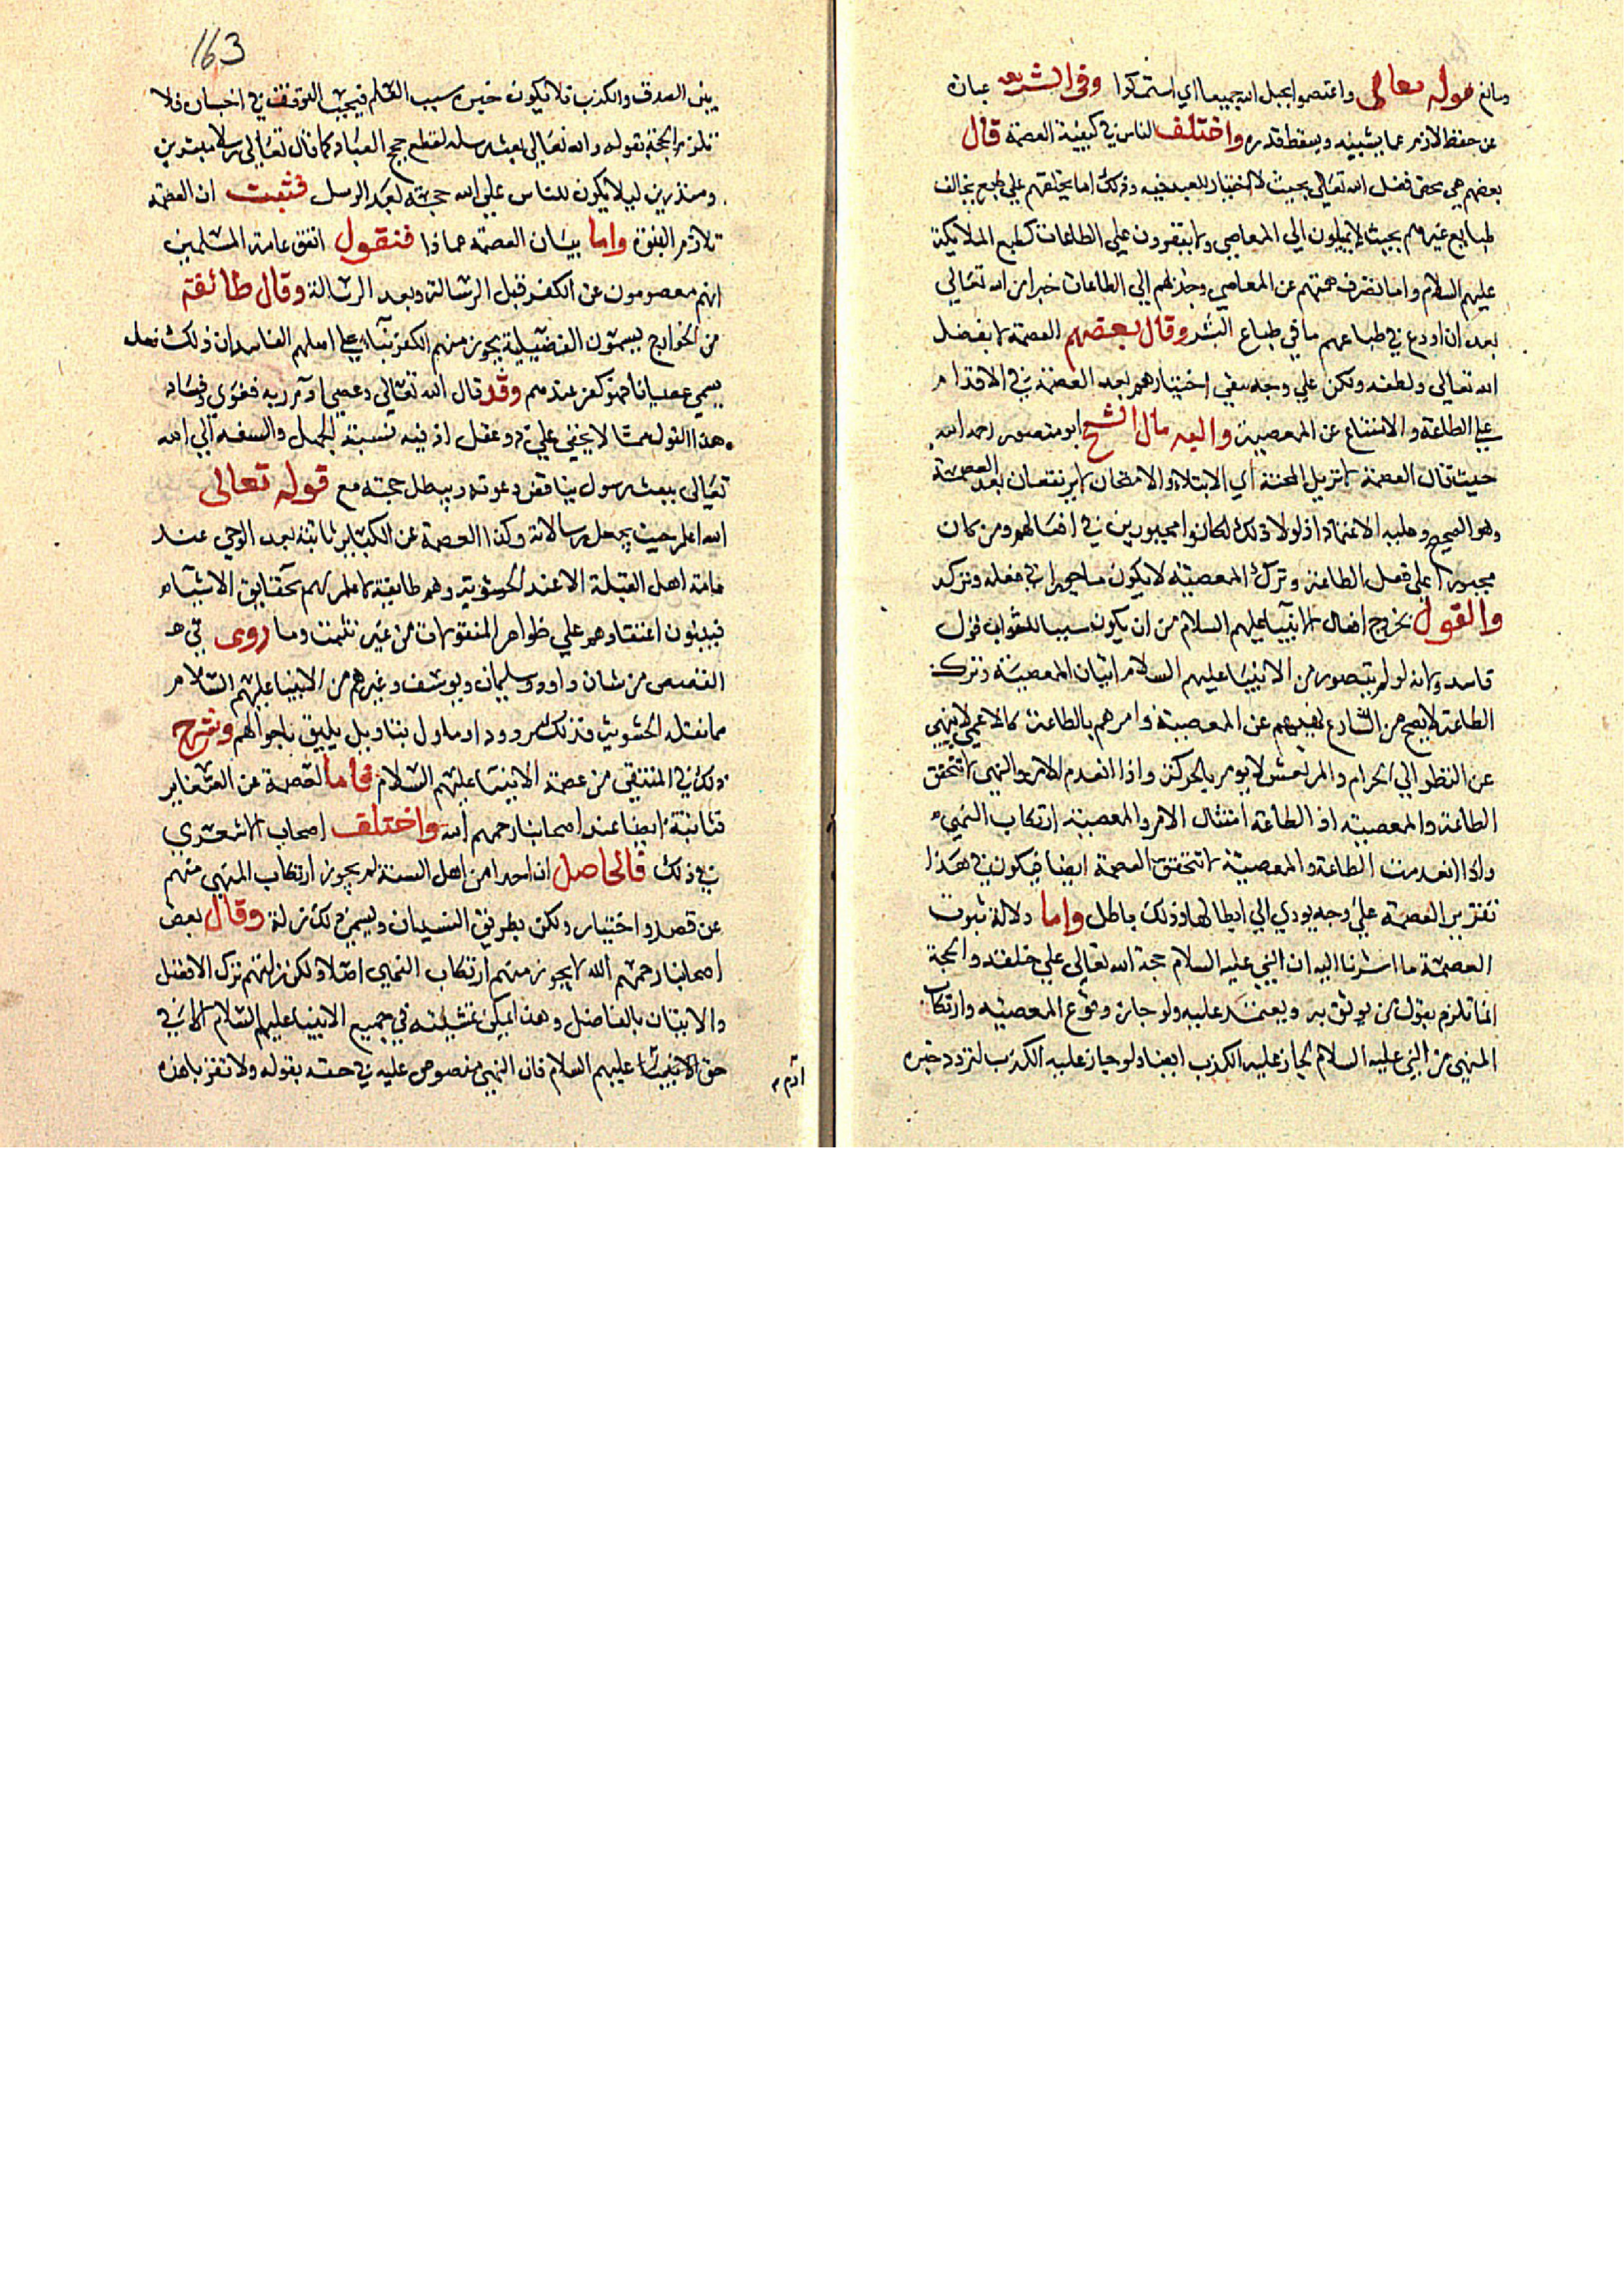 ومانع قوله تعالى واعتصموا بحبل الله جميعا اي استمسكوا وفي الشريعة عبارة
عن حفظ الادمي عما يشينه ويسقط قدره واختلف الناس في كيفية العصمة قال
بعضهم هي محض فضل الله تعالى بحيث لا اختيار للعبد فيه وذلك اما بخلقهم علي طبع يخالف
طبايع غيرهم بحيث لا يميلون الي المعاصي ولا ينفرون علي الطاعات كطبع الملايكة
عليهم السلام واما بصرف همتهم عن المعاصي وجذبهم الي الطاعات خبرا من الله تعالى
بعد ان اودع في طباعهم ما في طباع البشر وقال بعضهم العصمة بفضل
الله تعالى ولطفه ولكن علي وجه يبقي اختيارهم بعد العصمة في الاقدام
علي الطاعة والامتناع عن المعصية واليه مال الشيخ ابو منصور رحمه الله
حيث قال العصمة لا تزيل المحنة اي الابتلاء والامتحان لا يرتفعان بعد العصمة
وهو الصحيح وعليه الاعتماد اذ لولا ذلك لكانوا مجبورين في افعالهم ومن كان
مجبورا علي فعل الطاعة وترك المعصية لا يكون ماجورا في فعله وتركه
والقول بخروج افعال الانبيا عليهم السلام من ان يكون سببا للثواب قول
فاسد ولانه لو لم يتصور من الانبيا عليهم السلام اتيان المعصية وترك
الطاعة لا يصح من الشارع نهيهم عن المعصية وامرهم بالطاعة كالاعمي لا ينهي
عن النظر الي الحرام والمرتعش لا يومر بالحركة واذا انعدم الامر والنهي لا تتحقق
الطاعة والمعصية اذ الطاعة امتثال الامر والمعصية ارتكاب النهي
واذا انعدمت الطاعة والمعصية لا تتحقق العصمة ايضا فيكون في هذا
تقرير العصمة علي وجه يودي الي ابطالها وذلك باطل واما دلالة ثبوت
العصمة ما اشرنا اليه ان النبي عليه السلام حجة الله تعالى علي خلقه والحجة
انما تلزم بقول من يوثق به ويعتمد عليه ولو جاز وقوع المعصية وارتكاب
المنهي من النبي عليه السلام لجاز عليه الكذب ايضا ولو جاز عليه الكذب لتردد خبره
163
بين الصدق والكذب فلا يكون خبره سبب العلم فيجب التوقف في اخباره فلا
تلزم الحجة بقوله والله تعالى بعث رسله لقطع حجج العباد كما قال تعالى رسلا مبشرين
ومنذرين ليلا يكون للناس علي الله حجة بعد الرسل فثبت ان العصمة
تلازم النبوة واما بيان العصمة عماذا فنقول اتفق عامة المسلمين
انهم معصومون عن الكفر قبل الرسالة وبعد الرسالة وقال طائفة
من الخوارج يسمون الفضيلية يجوز منهم الكفر بناء علي اصلهم الفاسد ان ذلك فعل
يسمي عصيانا فهو كفر عندهم وقد قال الله تعالى وعصي آدم ربه فغوي وفساد
هذا القول مما لا يخفي علي ذو عقل اذ فيه نسبة الجهل والسفه الي الله
تعالى ببعث رسول يناقض دعوته ويبطل حجته مع قوله تعالى
الله اعلم حيث يجعل رسالاته وكذا العصمة عن الكباير ثابتة بعد الوحي عند
عامة اهل القبلة الا عند الحشوية وهم طايفة لا علم لهم بحقايق الاشياء
فيبنون اعتقادهم علي ظواهر المنقولات من غير وما روى في
القصص من شان داوود وسليمان ويوسف وغيرهم من الانبيا عليهم السلام
مما نقله الحشوية فذلك مردود او ماول بتاويل يليق باحوالهم وشرح
ذلك في المنتقي من عصمة الانبيا عليهم السلام فاما العصمة عن الصغاير
فثابتة ايضا عند اصحابنا رحمهم الله واختلف اصحاب الاشعري
في ذلك فالحاصل ان احدا من اهل السنة لم يجوز ارتكاب المنهي منهم
عن قصد واختيار ولكن بطريق النسيان ويسمي ذلك زلة وقال بعض
اصحابنا رحمهم الله لا يجوز منهم ارتكاب النهي اصلا ولكن زلتهم ترك الافضل
والاتيان بالفاضل وهذا يمكن تمشيته في جميع الانبيا عليهم السلام الا في
حق الانبيا عليهم السلام فان النهي منصوص عليه في حقه بقوله ولا تقربا هذه
آدم